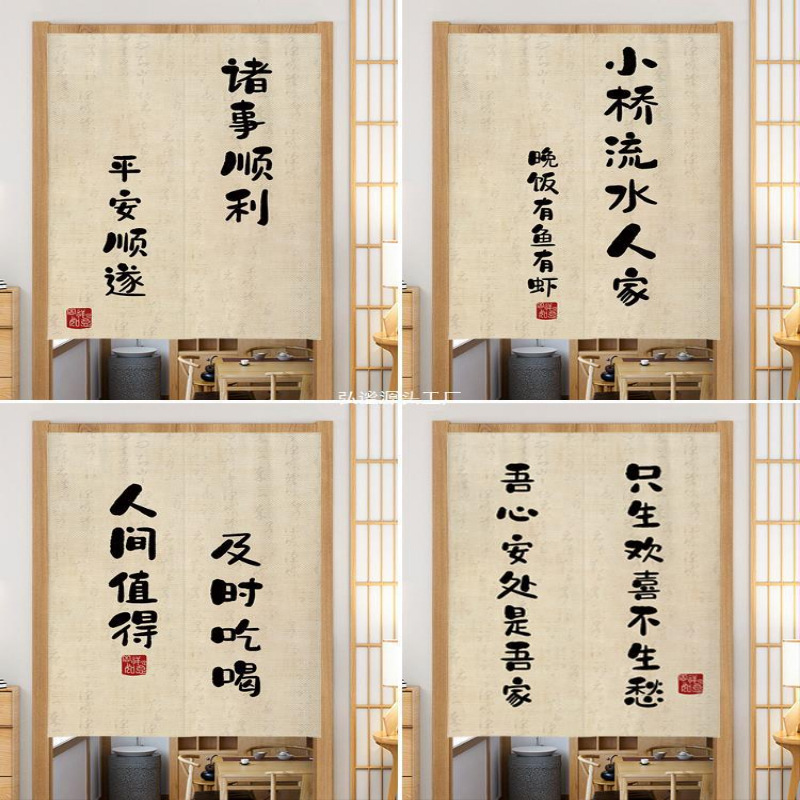 诸事顺利
平安顺遂
小桥流水人家
晚饭有鱼有虾
源头工厂
及时吃喝
人间值得
只生欢喜不生愁
吾心安处是吾家